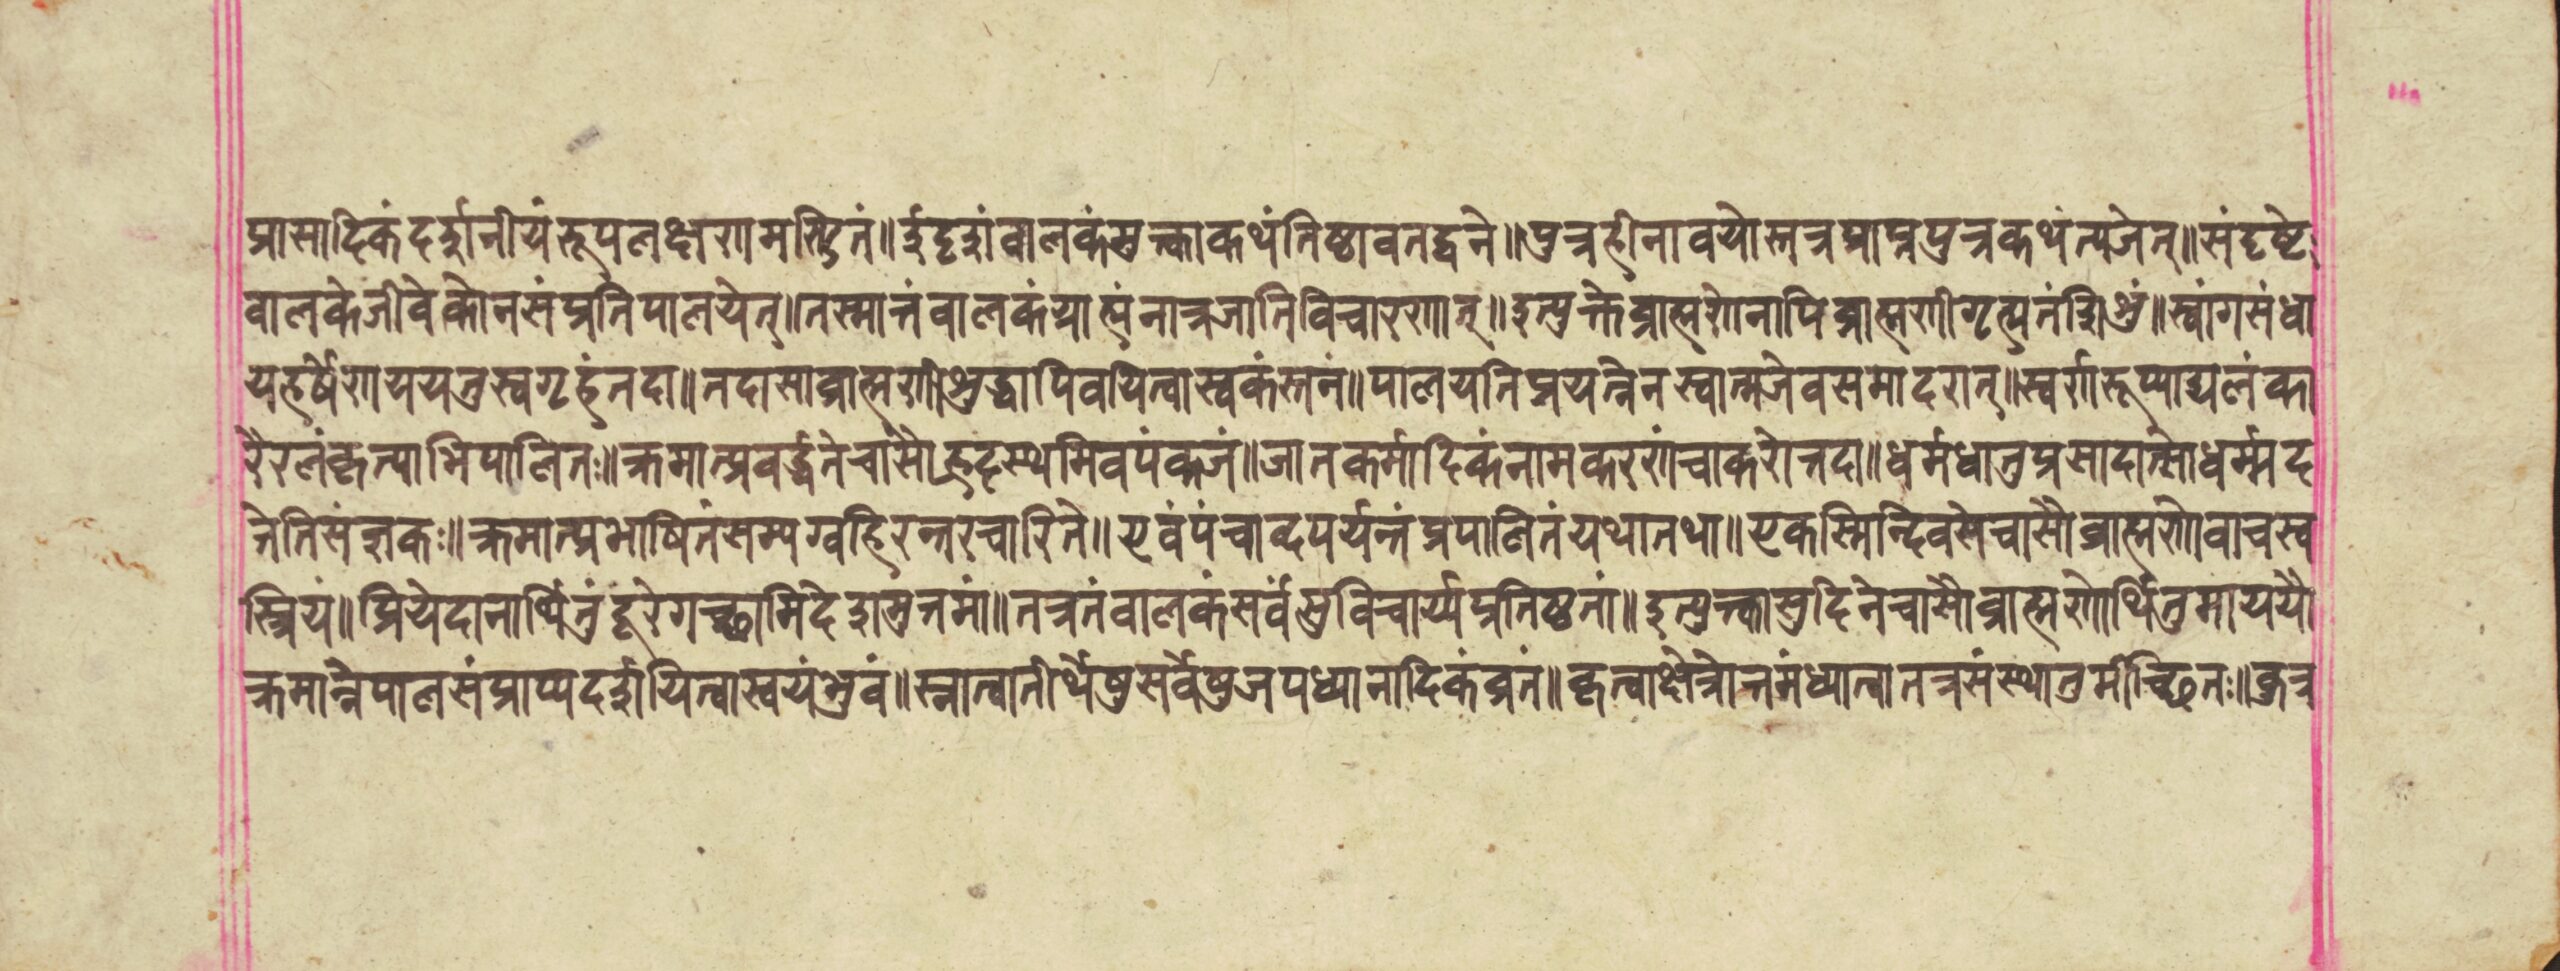 प्रासादिकं दर्शानीयं रूपलक्षणमण्डितं॥ ईदृशं वालकं मुक्त्वा कथं तिष्ठावतद्वने॥ पुत्रहीनावयोस्तत्र प्राप्तपुत्रकथं त्यजेत्॥ संदृष्टे
वालके जीवे को न संप्रतिपालयेत्॥ तस्मात्तं वालकं ग्राह्यं नात्र जाति विचारणात्॥ इत्युक्ते ब्राह्मणेनापि ब्राह्मणी गृह्य तं शिशुं॥ स्वांग संधा
य हर्षेण ययतु स्वगृहं तदा॥ तदा सा ब्राह्मणी शुद्धा पिवयित्वा स्वकं स्तनं॥ पालयति प्रयत्नेन स्वात्मजेव समादरात्॥ स्वर्णरूप्याद्यलंका
रैरलंकृत्याभिपालितः॥ क्रमात्प्रवर्द्धते चासौ ह्रदस्थमिव पंकजं॥ जातकर्मादिकं नामकरणं चाकरोत्तदा॥ धर्मधातुप्रसादात्सो धर्म्मद
त्तेति संज्ञकः॥ क्रमात्प्रभाषितं सम्यग्वहिरन्तरचारिते॥ एवं पंचाव्दपर्यन्तं प्रपालितं यथातथा॥ एकस्मिन्दिवसे चासौ ब्राह्मणोवाच स्व
स्त्रियं॥ प्रिये दानार्थितुं दूरे गच्छामि देशमुत्तमां॥ तत्र तं वालकं सर्वं सुविचार्य्य प्रतिष्ठतां॥ इत्युक्त्वा सुदिने चासौ ब्राह्मणोर्थितुमाययौ
क्रमान्नेपाल संप्राप्य दर्शयित्वा स्वयंभुवं॥ स्नात्वा तीर्थेषु सर्वेषु जपध्यानादिकं व्रतं॥ कृत्वा क्षेत्रोत्तमं ध्यात्वा तत्र संस्थातुमिच्छितः॥ कुत्र